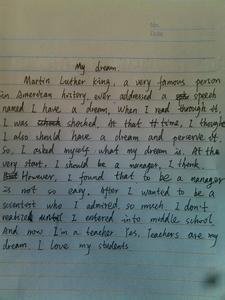 No.
Date
My dream.
Martin Luther King, a very famous person
in American history, ever addressed a speech
named I have a dream, When I read through it,
I was shocked. At that time, I thought
I also should have a dream and perserve it.
So, I asked myself what my dream is. At the
very start, I should be a manager, I think.
However, I found that to be a manager
is not so easy. After I wanted to be a
scientist who I admired so much. I don't
realize until I entered into middle school.
And now I'm a teacher. Yes, Teachers are my
dream. I love my students